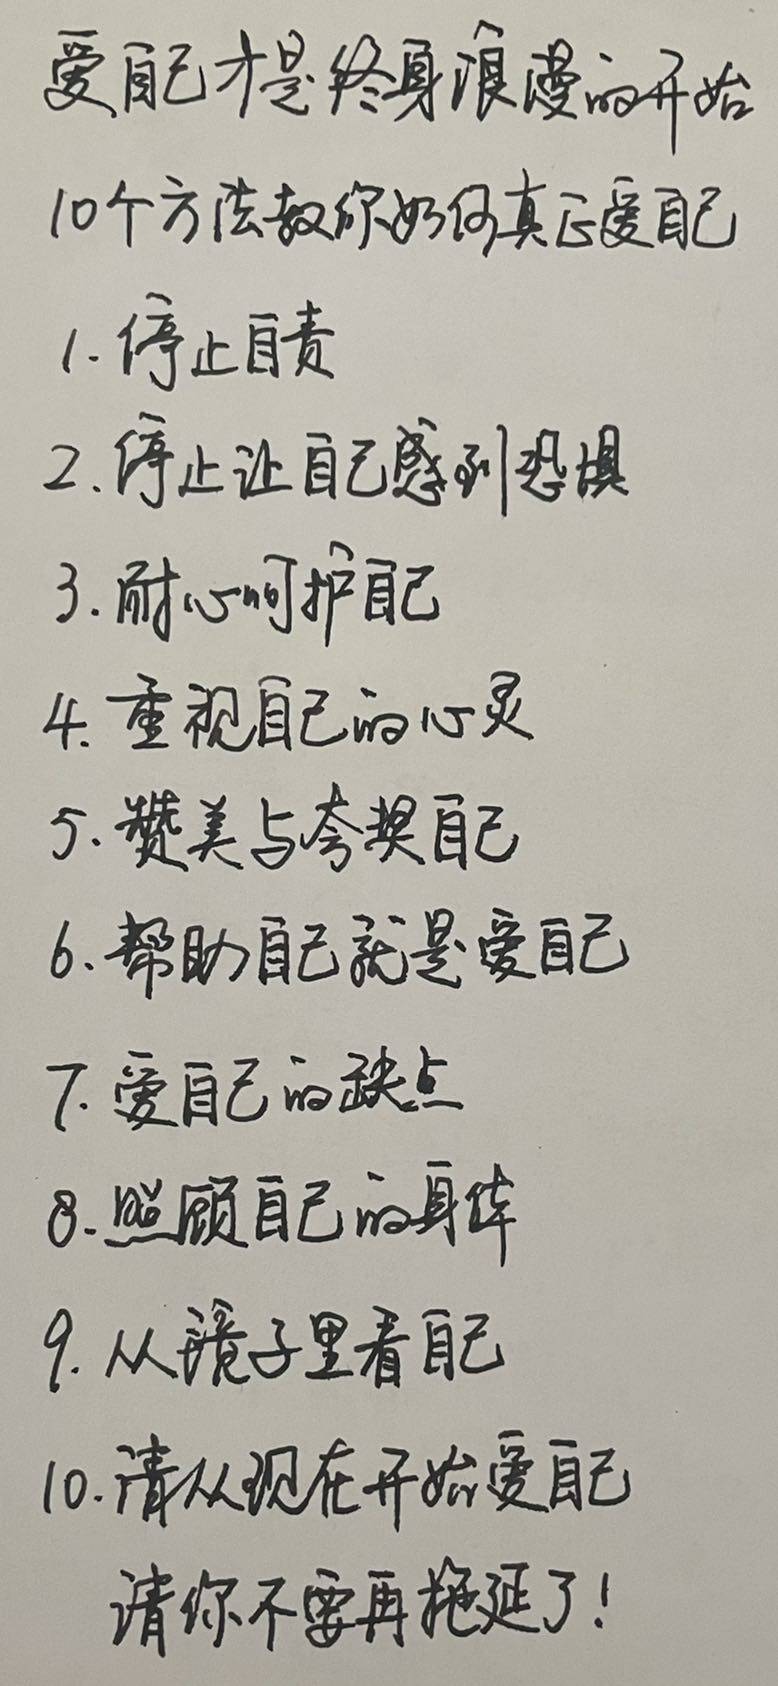 爱自己才是终身浪漫的开始
10个方法教你如何真正爱自己
1.停止自责
2.停止让自己感到恐惧
3.耐心呵护自己
4.重视自己的心灵
5.赞美与夸奖自己
6.帮助自己就是爱自己
7.爱自己的缺点
8.照顾自己的身体
9.从镜子里看自己
10.请从现在开始爱自己
请你不要再拖延了!